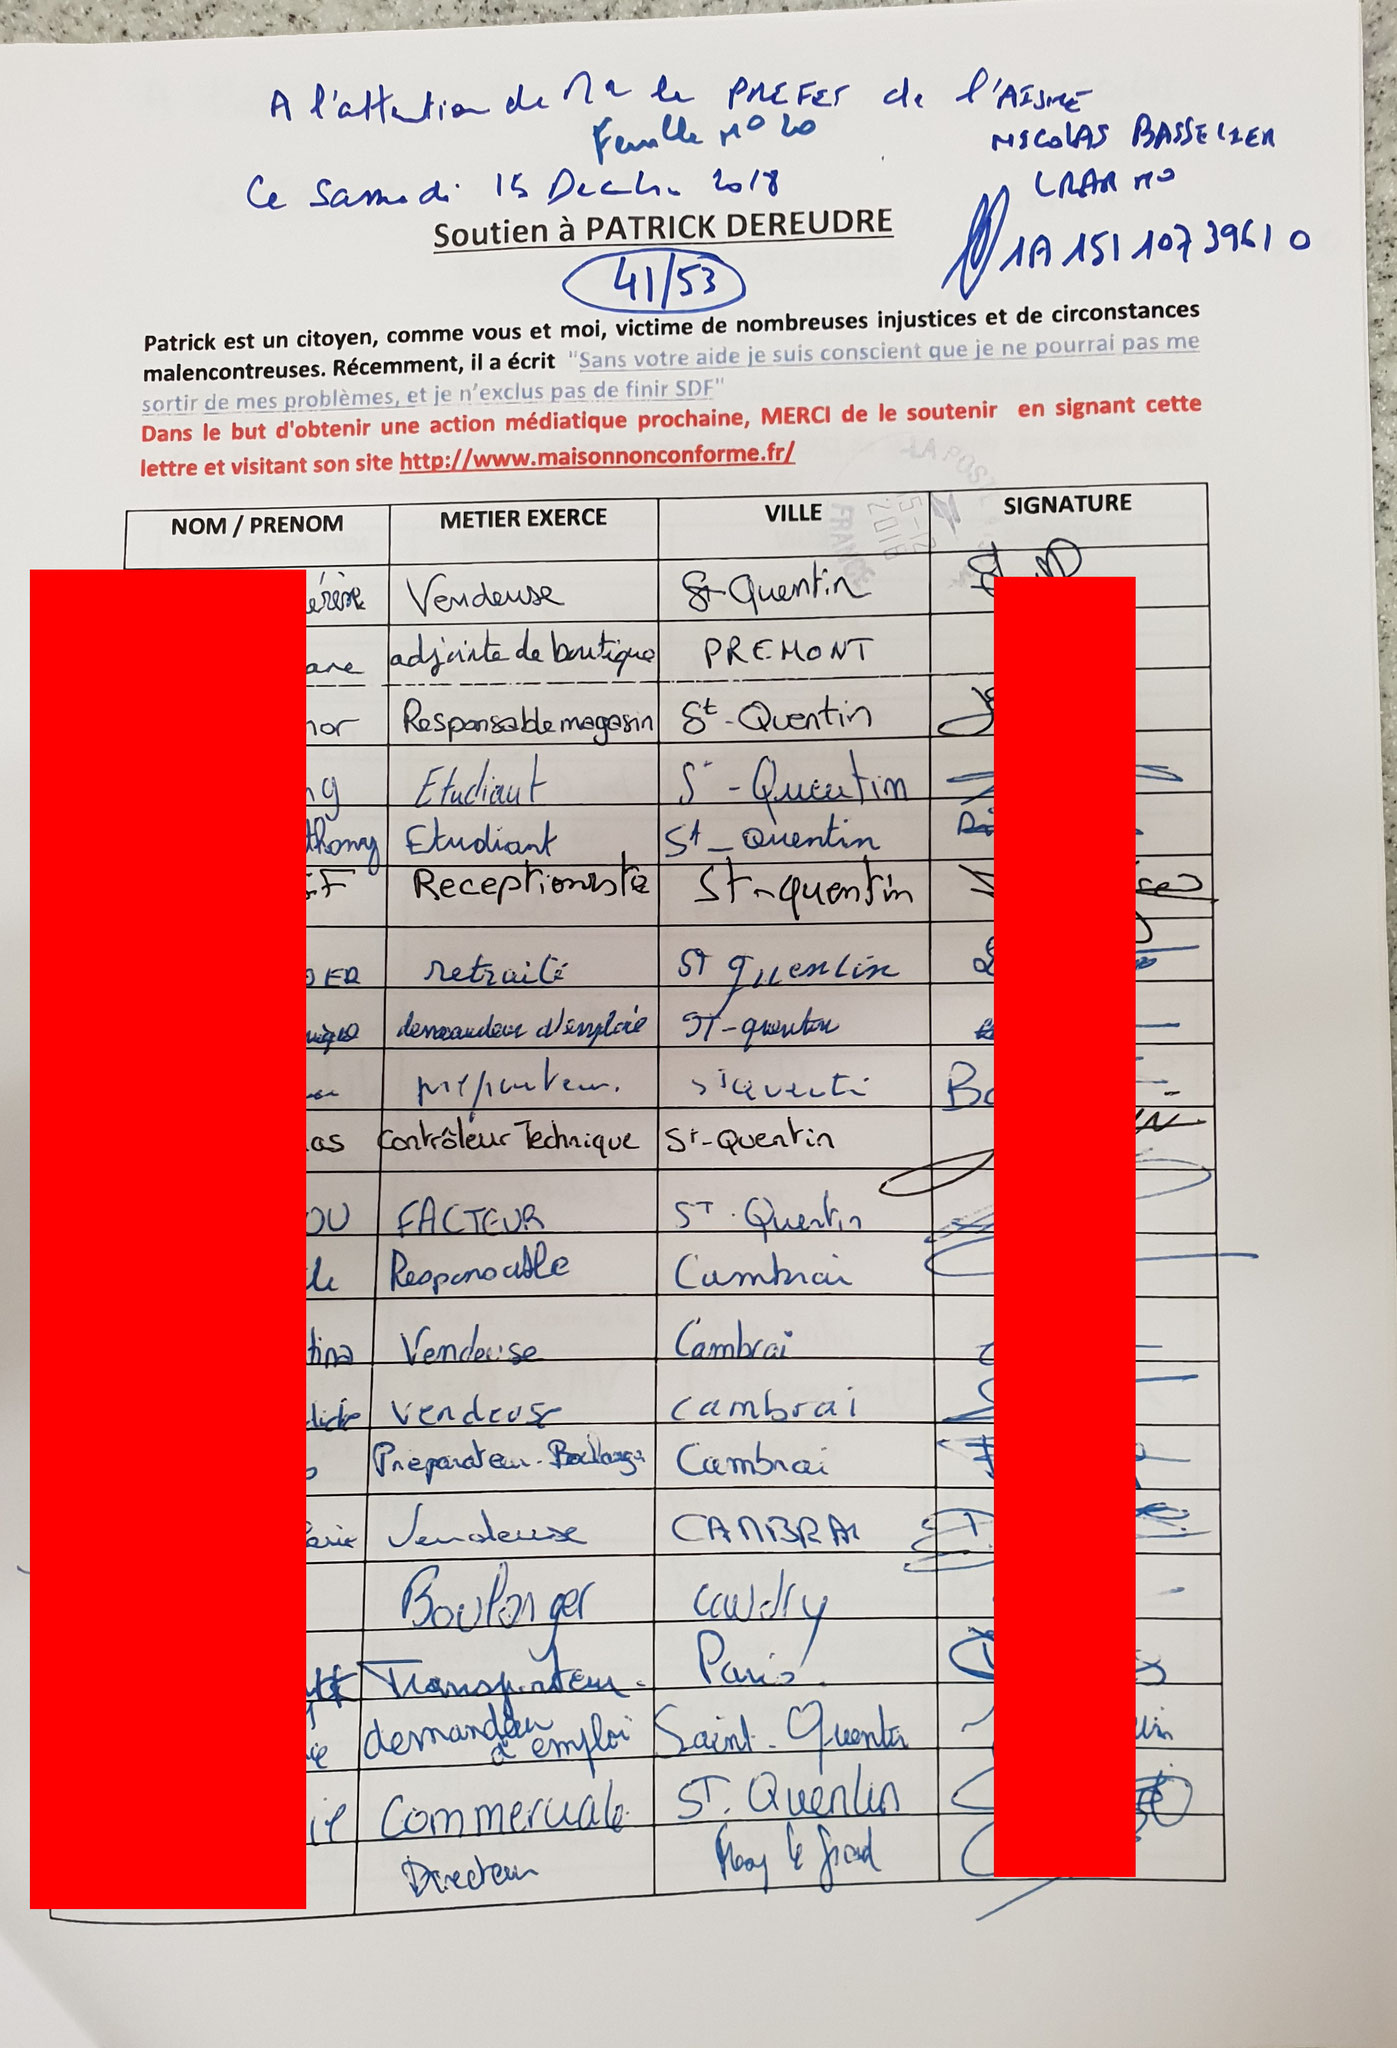 A l'attention de Mr le PREFET de l'AISNE
Feuille n° 20
NICOLAS BASSELIER
Ce Samedi 15 Décembre 2018
LRAR N°
1A 151 107 3961 0
Soutien à PATRICK DEREUDRE
41/53
Patrick est un citoyen, comme vous et moi, victime de nombreuses injustices et de circonstances
malencontreuses. Récemment, il a écrit "Sans votre aide je suis conscient que je ne pourrai pas me
sortir de mes problèmes, et je n'exclus pas de finir SDF"
Dans le but d'obtenir une action médiatique prochaine, MERCI de le soutenir en signant cette
lettre et visitant son site http://www.maisonnonconforme.fr/
LA POSTE
15-12
2018
FRANCE
NOM / PRENOM METIER EXERCE VILLE SIGNATURE
érèse Vendeuse St-Quentin
ane adjointe de boutique PREMONT
nor Responsable magasin St-Quentin
ng Etudiant St-Quentin
thony Etudiant St-Quentin
FF Receptioniste St-quentin
DER retraité ST quentin
demandeur d'emploie ST-quentin
préparateur. St Quentin
las Contrôleur Technique St-Quentin
OU FACTEUR ST. Quentin
le Responsable Cambrai
tina Vendeuse Cambrai
Vendeuse Cambrai
Préparateur-Boulanger Cambrai
Vendeuse CAMBRAI
Boulanger Caudry
Transporteur. Paris
demandeur d'emploi Saint-Quentin
ie Commerciale ST. Quentin
Directeur